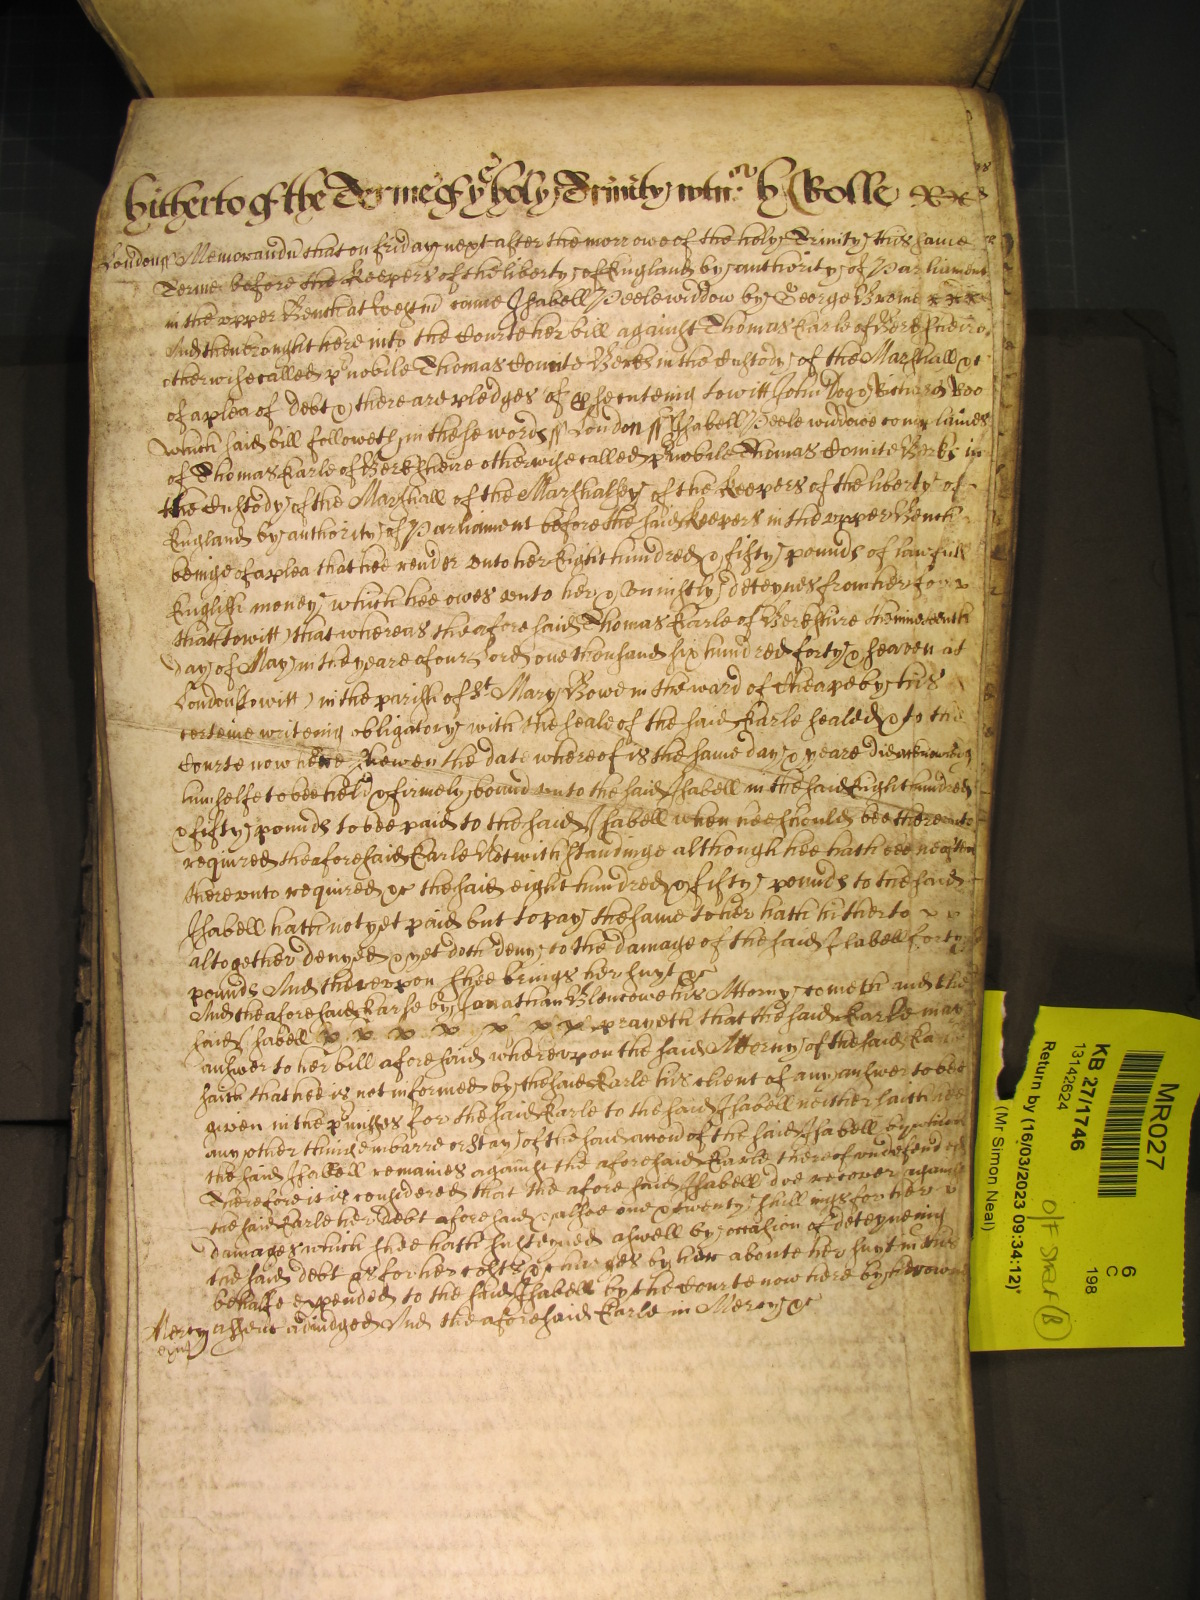 hitherto of the Terme of ye holy Trinity wtn: h Rolle
London Memorandu that on friday next after the morrowe of the holy Trinity this same
Terme before the keepers of the liberty of England by authority of Parliament
in the vpper Bench at Westmr came Isabell Peele widdow by George Brome x x x
And then brought here into the Courte her bill against Thomas Earle of Berksheire
otherwise called pnobile Thomas Comite Berks in the Custody of the Marshall &c
of a plea of debt & there are pledges of psecuteing towitt John Doo & Richard Roo
Which said bill followeth in these words ss London ss Isabell Peele widdowe complaines
of Thomas Earle of Berksheire otherwise called pnobile Thomas Comite Berks in
the Custody of the Marshall of the Marshalsey of the keepers of the liberty of
England by authority of Parliament before the said keepers in the vpper Bench
beinge of a plea that hee render vnto her Eight hundred & fifty pounds of lawfull
English money which hee owes vnto her & vniustly deteynes from her for x
that towitt) that whereas the aforesaid Thomas Earle of Berkshire the nineteenth
day of May in the yeare of our Lord one thousand six hundred forty & seaven at
London (towitt) in the parish of St Mary Bowe in the ward of Cheape by his
certeine writeing obligatory with the seale of the said Earle sealed & to the
Courte now here shewen the date whereof is the same day & yeare did acknowledg
himselfe to bee held & firmely bound vnto the said Isabell in the said Eight hundred
& fifty pounds to bee paid to the said Isabell when hee should bee therevnto
required the aforesaid Earle Notwithstandinge although hee hath bee often
therevnto required &c the said eight hundred & fifty pounds to the said
Isabell hath not yet paid but to pay the same to her hath hitherto x x
altogether denyed & yet doth deny to the damage of the said Isabell forty
pounds And therevpon shee brings her suyt &c
And the aforesaid Earle by Jonathan Blencowe his Attorny cometh and the
said Isabell x x x x x x x prayeth that the said Earle may
answer to her bill aforesaid wherevpon the said Attorny of the said Earle
saith that hee is not informed by the said Earle his client of any answer to bee
given in the pmisses for the said Earle to the said Isabell neither saith hee
any other thinge in barre or stay of the said accion of the said Isabell by which
the said Isabell remaines against the aforesaid Earle thereof vndefended
Therefore it is considered that the aforesaid Isabell doe recover against
the said Earle her debt aforesaid & alsoe one & twenty shillings for her x
damages which shee hath susteyned aswell by occasion of deteyneing
the said debt as for her costs & charges by her aboute her suyt in this
behalfe expended to the said Isabell by the Courte now here by her owne
assent adiudged And the aforesaid Earle in Mercy &c
Mercy
MR027
KB 27/1746
13142624
Return by (16/03/2023 09:34:12)'
(Mr Simon Neal)
6
C
198
O/F Shelf (B)